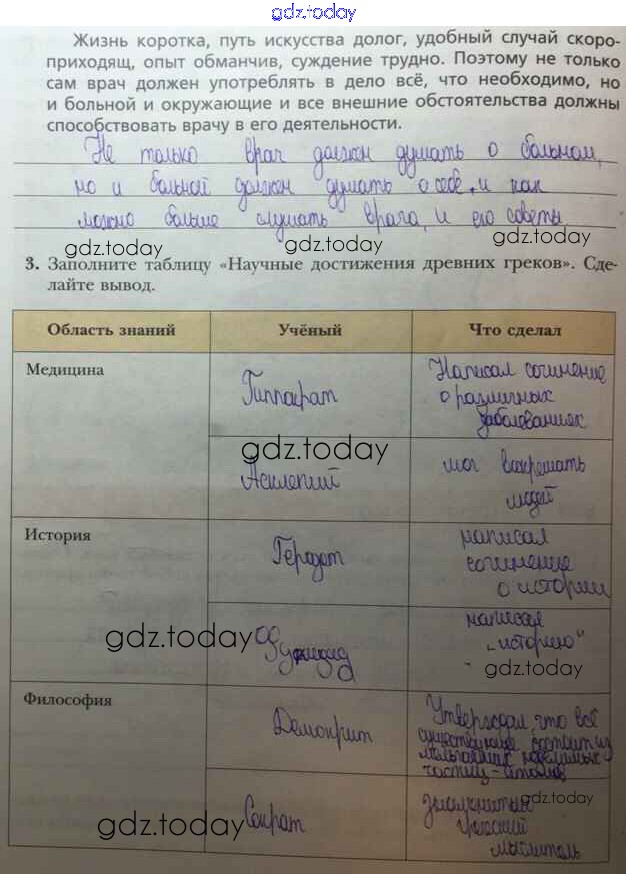 gdz.today
Жизнь коротка, путь искусства долог, удобный случай скоро-
преходящ, опыт обманчив, суждение трудно. Поэтому не только
сам врач должен употреблять в дело всё, что необходимо, но
и больной и окружающие и все внешние обстоятельства должны
способствовать врачу в его деятельности.
Не только врач должен думать о больном,
но и больной должен думать о себе, и как
можно больше слушать врача, и его советы
gdz.today gdz.today gdz.today
3. Заполните таблицу «Научные достижения древних греков». Сде-
лайте вывод.
Область знаний Учёный Что сделал
Медицина Гиппократ Написал сочинение
о различных
заболеваниях
gdz.today
Асклепий мог воскрешать
людей
gdz.today
История Геродот написал
сочинение
о истории
gdz.today Фукидид написал
„историю“
gdz.today
Философия Демокрит Утверждал, что всё
существующее состоит из
мельчайших неделимых
частиц - атомов
gdz.today Сократ знаменитый
греческий
мыслитель
gdz.today